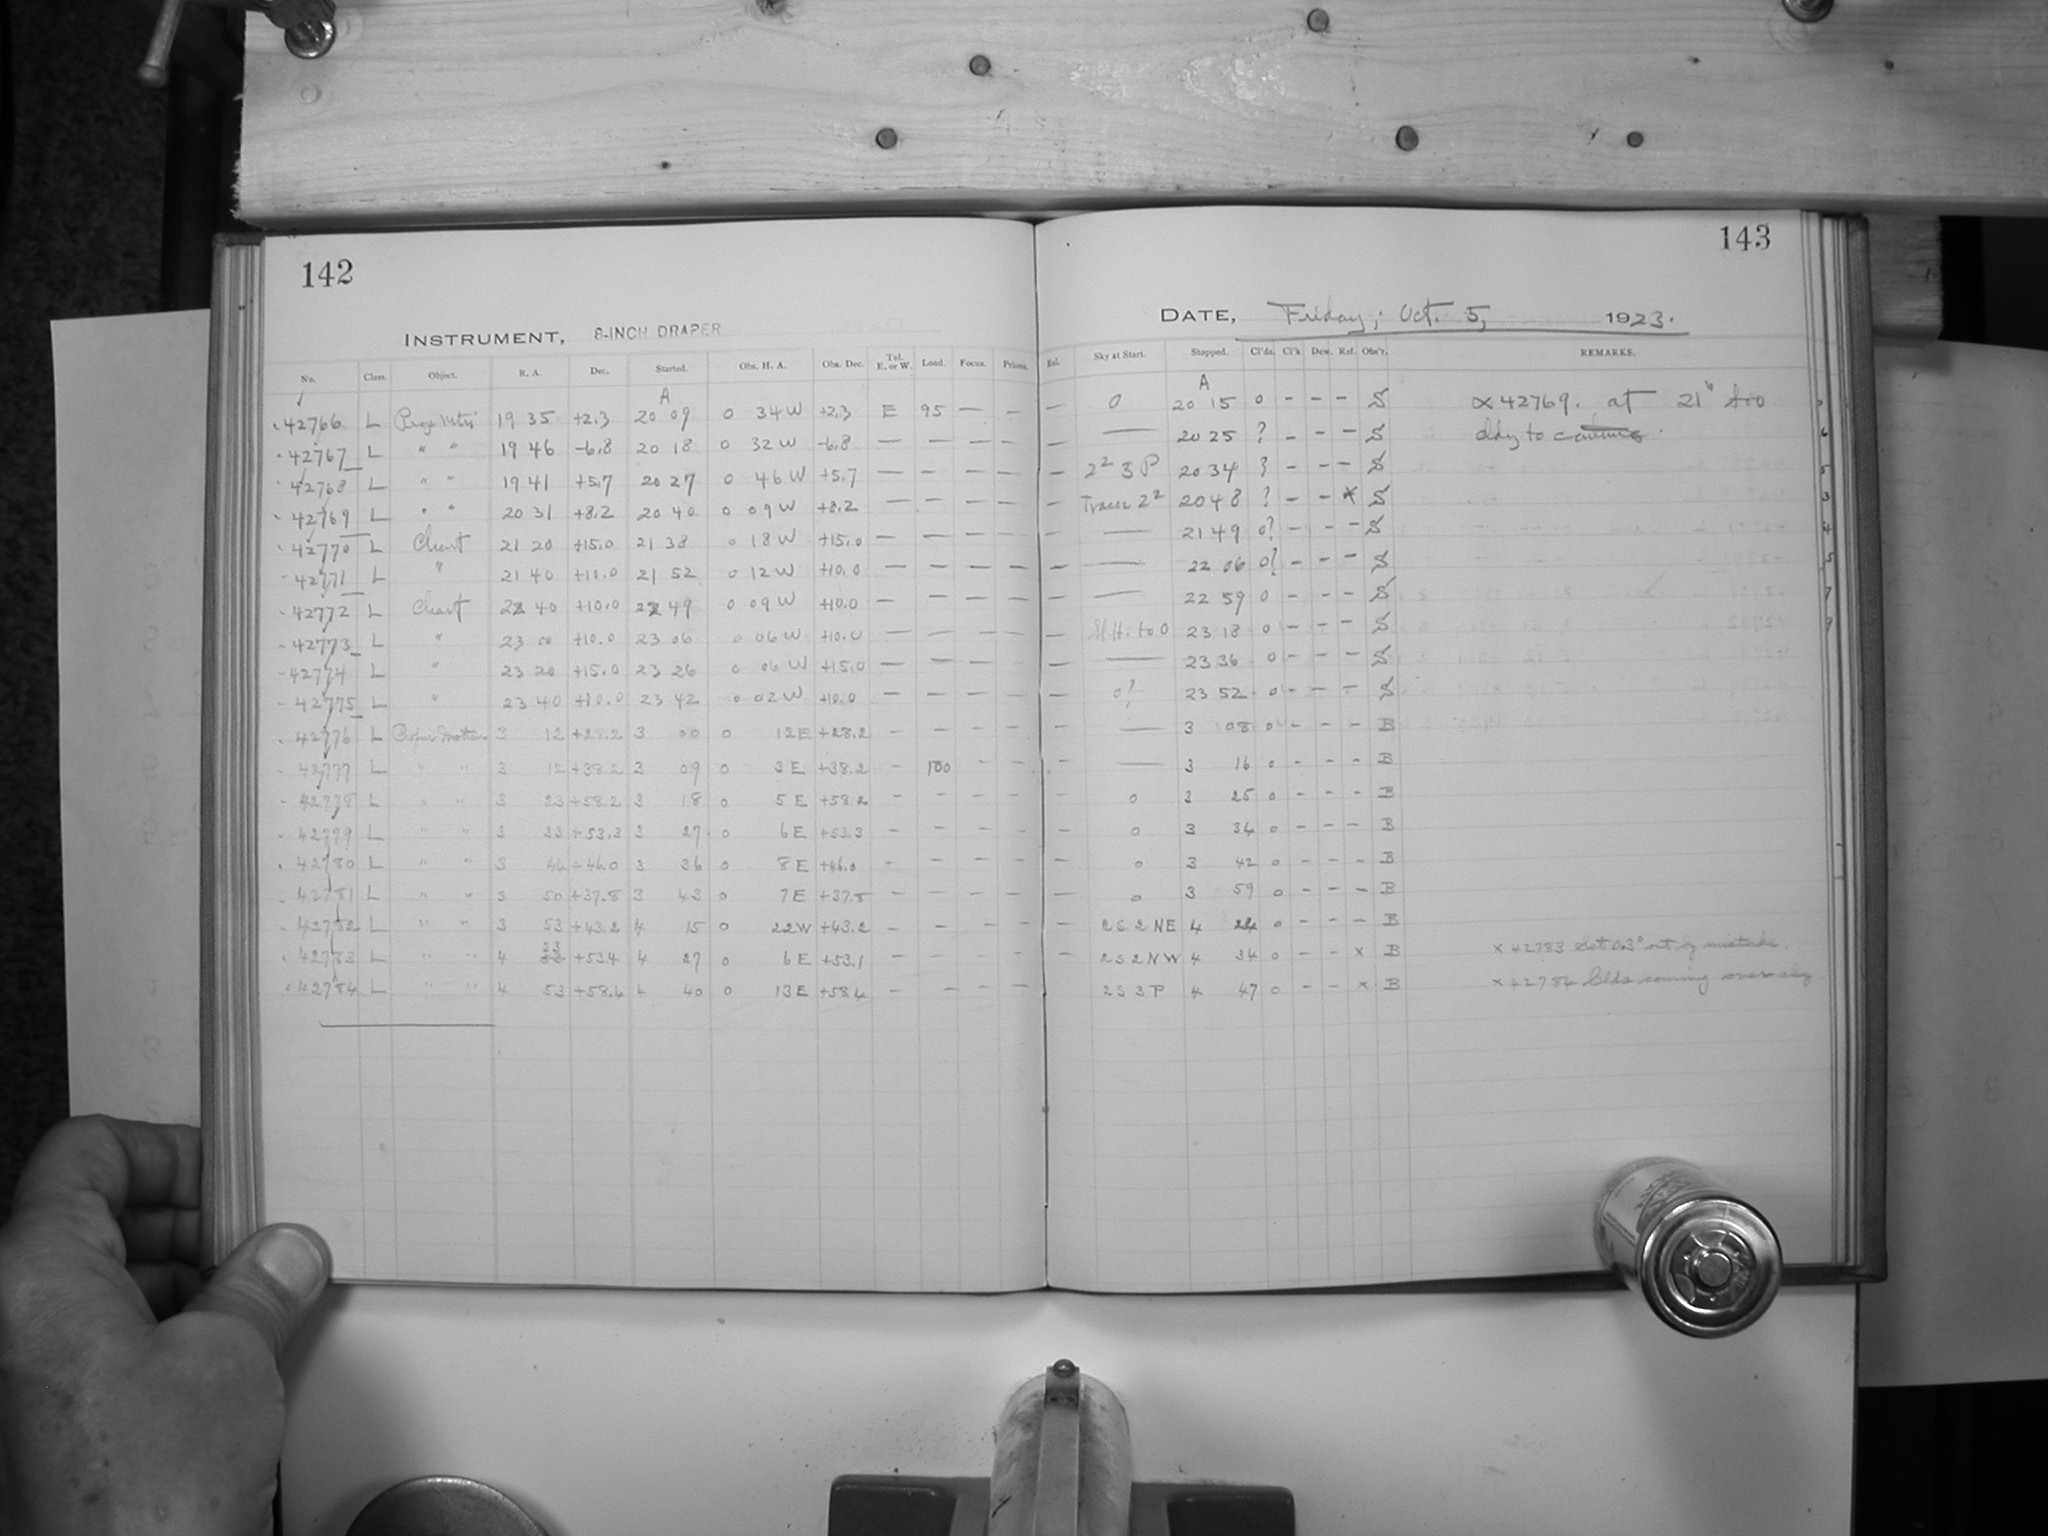 142
143
INSTRUMENT, 8-INCH DRAPER
DATE, Friday, Oct. 5, 1923.
No. Class. Object. R. A. Dec. Started. Obs. H. A. Obs. Dec. Tel. E. or W. Load. Focus. Prisms. Sky at Start. Stopped. Cl'ds. Cl'k Dew. Ref. Obs'r. REMARKS.
A A
42766 L 19 35 +2.3 20 09 0 34 W +2.3 E 95 — — — 0 20 15 0 - - - S × 42769. at 21 too
42767 L " " 19 46 -6.8 20 18 0 32 W -6.8 — — — — — — 20 25 ? - - - S cldy to continue.
42768 L " " 19 41 +5.7 20 27 0 46 W +5.7 — — — — — 2² 3 P 20 34 ? - - - S
42769 L " " 20 31 +8.2 20 40 0 09 W +8.2 — — — — — 2² 20 48 ? - - × S
42770 L Chart 21 20 +15.0 21 38 0 18 W +15.0 — — — — — — 21 49 0? - - - S
42771 L " 21 40 +10.0 21 52 0 12 W +10.0 — — — — — — 22 06 0? - - - S
42772 L Chart 22 40 +10.0 22 49 0 09 W +10.0 — — — — — — 22 59 0 - - - S
42773 L " 23 00 +10.0 23 06 0 06 W +10.0 — — — — — Sl. H. to 0 23 18 0 - - - S
42774 L " 23 20 +15.0 23 26 0 06 W +15.0 — — — — — — 23 36 0 - - - S
42775 L " 23 40 +10.0 23 42 0 02 W +10.0 — — — — — 0? 23 52 0 - - - S
42776 L Proper Motion 3 12 +28.2 3 00 0 12 E +28.2 - - - - - — 3 08 0 - - - B
42777 L " " 3 12 +38.2 3 09 0 3 E +38.2 - 100 - - - — 3 16 0 - - - B
42778 L " " 3 23 +58.2 3 18 0 5 E +58.2 - - - - - 0 3 25 0 - - - B
42779 L " " 3 33 +53.3 3 27 0 6 E +53.3 - - - - - 0 3 34 0 - - - B
42780 L " " 3 44 +46.0 3 36 0 8 E +46.0 - - - - - 0 3 42 0 - - - B
42781 L " " 3 50 +37.8 3 43 0 7 E +37.8 - - - - - 0 3 59 0 - - - B
42782 L " " 3 53 +43.2 4 15 0 22 W +43.2 - - - - - 2 S 2 NE 4 24 0 - - - B
42783 L " " 4 33 +53.4 4 27 0 6 E +53.1 - - - - - 2 S 2 NW 4 34 0 - - × B × 42783 Set 0.3° out by mistake.
42784 L " " 4 53 +58.4 4 40 0 13 E +58.4 - - - - 2 S 3 P 4 47 0 - - × B × 42784 Clds coming over sky